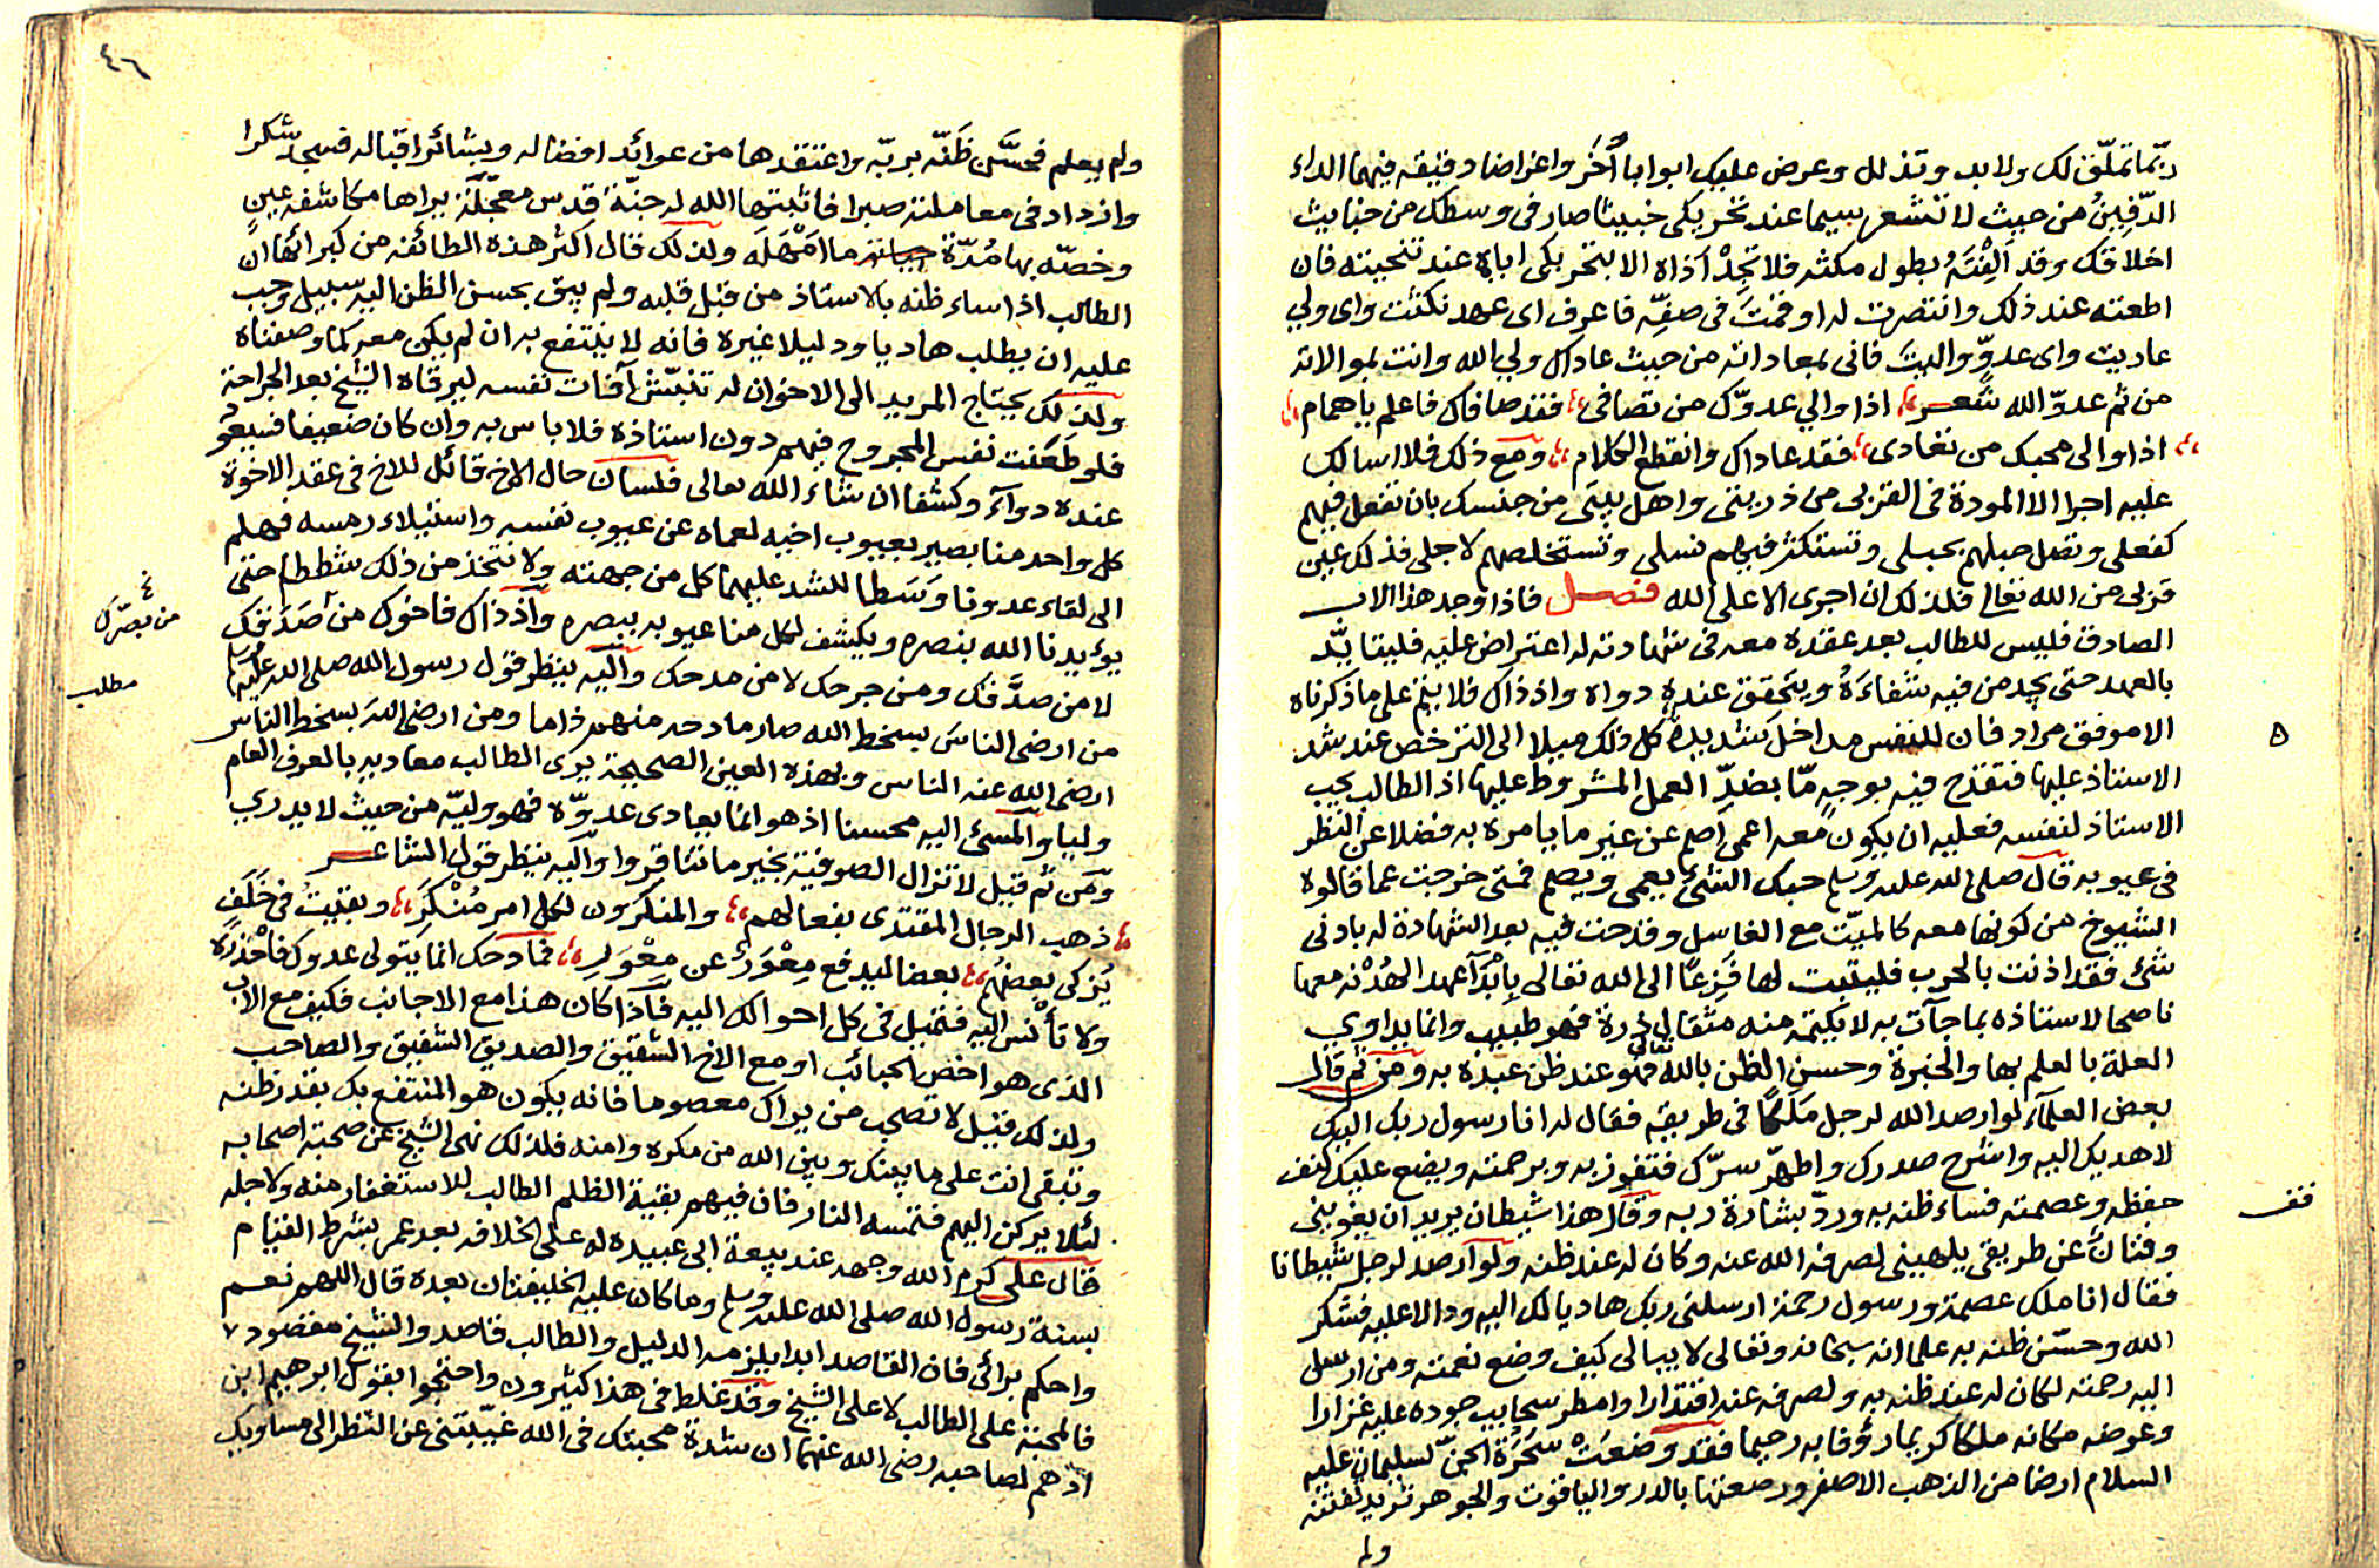 ربما تملّق لك ولا بد وتذلل وعرض عليك ابوابا أُخَر واغراضا دقيقه فيهما الداء
الدّفِينُ من حيث لا تشعر سيما عند تحريكى خبيثا صار فى وسطك من خبايث
اخلاقك وقد اَلِفْتَهُ بطول مكثه فلا تجِدْ اذاه الا بتحريكى اباه عند تنحيته فان
اطعته عند ذلك وانتصرت له او قمتَ فى صفِّه فاعرف اى عهد نكثت واى ولي
عاديت واى عدوٍّ واليتَ فانى بمعاداته من حيث عاداك ولي الله وانت بموالاته
من ثم عدوّ الله شعر اذا والي عدوّك من تصافى فقد صافاك فاعلم ياهمام
اذا والى محبك من تعادى فقد عاداك وانقطع الكلام ومع ذلك فلا اسالك
عليه اجرا الا المودة فى القربى من ذريتى واهل بيتى من جنسك بان تفعل فيهم
كفعلى وتصل حبلهم بحبلى وتستكثر فيهم نسلى وتستخلصهم لاجلى فذلك عين
قربى من الله تعالى فلذلك ان اجرى الا على الله فصل فاذا وجد هذا الاب
الصادق فليس للطالب بعد عقده معه فى شهادته له اعتراض عليه فليتايّد
بالعهد حتى يجد من فيه شفاءَهُ ويتحقق عنده دواه واذ ذاك فلا يتم على ما ذكرناه
الا موفق مراد فان للنفس مداخل شديدة كل ذلك ميلا الى الترخص عند شد
الاستاذ عليها فتقدح فيه بوجهٍ مّا بضدِّ العمل المشروط عليها اذ الطالب يحب
الاستاذ لنفسه فعليه ان يكون معه اعمى اصم عن غير ما يامره به فضلا عن النظر
فى عيوبه قال صلى الله عليه وسلم حبك الشئ يعمى ويصم فمتى خرجت عما قالوه
الشيوخ من كونها معه كالميّت مع الغاسل وقدحت فيه بعد الشهادة له بادنى
شئ فقد اذنت بالحرب فليثبت لها فَزِعًا الى الله تعالى بابْدَآ عهد الهُدْنه معها
ناصحا لاستاذه بما جآت به لا يكتمه منه مثقال ذرة فهو طبيب وانما يداوي
العلة بالعلم بها والخبرة وحسن الظن بالله تعالى فهو عند ظن عبده به ومن ثم قال
بعض العلمآء لو ارصد الله لرجل مَلَكًا فى طريقه فقال له انا رسول ربك اليك
لاهديك اليه واشرح صدرك واطهّر سرّك فتفوز به وبرحمته ويضع عليك كنف
حفظه وعصمته فساء ظنه به وردّ بشارة ربه وقال هذا شيطان يريد ان يغوينى
وفتان عن طريقى يلهينى لصرفه الله عنه وكان له عند ظنه ولو ارصد لرجل شيطانا
فقال انا ملك عصمة ورسول رحمة ارسلنى ربك هاديا لك اليه ودالا عليه فشكر
الله وحسّن ظنه به علما انه سبحانه وتعالى لا يبالى كيف وضع نعمته ومن ارسل
اليه رحمته لكان له عند ظنه به ولصرفه عنه اقتدارا وامطر سحايب جوده عليه غزارا
وعوضه مكانه ملكا كريما رؤفا به رحيما فقد وضعَتْ سَحَرَة الجنّ لسليمان عليه
السلام ارضا من الذهب الاصفر ورصعتها بالدر والياقوت والجوهر تريد فتنته
ولم
٥
قف
٤٦
ولم يعلم فحسَّن ظَنّه بربّه واعتقدها من عوائد افضاله وبشائر اقباله فسجد شكرا
وازداد فى معاملته صبرا فاثبتها الله له جنّة قدس معجّلة يراها مكاشفه عينٍ
وخصّه بها مُدّة حياته ما امْهَلَه ولذلك قال اكثر هذه الطائفه من كبرائها ان
الطالب اذا ساء ظنه بالاستاذ من قِبَل قلبه ولم يبق بحسن الظن اليه سبيل وجب
عليه ان يطلب هاديا ودليلا غيره فانه لا ينتفع به ان لم يكن معه كما وصفناه
ولذلك يحتاج المريد الى الاخوان له تنبّش آفات نفسه ليرقاه الشيخ بعد الجراحة
فلو طَعَنت نفس المجروح فيهم دون استاذه فلا باس به وان كان ضعيفا فسيقو
عنده دوآء وكشفا ان شاء الله تعالى فلسان حال الاخ قائل للاخ فى عقد الاخوة
كل واحد منا بصير بعيوب اخيه لعماه عن عيوب نفسه واستيلاء رمسه فهلم
الى لقاء عدونا وَسَطا للشد عليهما كل من جهته ولا نتخذ من ذلك شططا حتى
يؤيدنا الله بنصره ويكشف لكل منا عيوبه ببصره واذ ذاك فاخوك من صَدَقك
لا من صدَّقك ومن جرحك لا من مدحك واليه ينظر قول رسول الله صلى الله عليه وسلم
من ارضى الناسَ بسخط الله صار مادحه منهم ذاما ومن ارضى اللهَ بسخط الناس
ارضى الله عنه الناس وبهذه العين الصحيحة يرى الطالب معاديه بالعرف العام
وليا والمسئ اليه محسنا اذ هو انما يعادى عدوّه فهو وليّه من حيث لا يدري
ومن ثم قيل لا تزال الصوفية بخير ما تناقروا واليه ينظر قول الشاعر
ذهب الرجال المقتدى بفعالهم والمنكرون لكل امر مُنْكَرَ وبقيتُ فى خَلَفٍ
يُزكى بعضُهم بعضا ليدفع مِعْوَرٌ عن مِعْوَرِ فمادحك انما يتولى عدوك فاحْذرْه
ولا تأنس اليه فتميل فى كل احوالك اليه فاذا كان هذا مع الاجانب فكيف مع الاب
الذى هو اخص الحبائب او مع الاخ الشقيق والصديق الشفيق والصاحب
ولذلك قيل لا تصحب من يراك معصوما فانه يكون هو المنتفع بك بقدر ظنه
وتبقى انت على ما بينك وبين الله من مكره وامنه فلذلك نهى الشيخ عن صحبة اصحابه
لئلا يركن اليهم فتمسه النار فان فيهم بقية الظلم الطالب للاستغفار منه ولاجله
قال على كرم الله وجهه عند بيعة ابى عبيده له على الخلافه بعد عمر بشرط القيام
بسنة رسول الله صلى الله عليه وسلم وما كان عليه الخليفتان بعده قال اللهم نعم
واحكم برائى فان القاصد ابدا يلزمه الدليل والطالب قاصد والشيخ مقصود
فالمحبة على الطالب لا على الشيخ وقد غلط فى هذا كثيرون واحتجوا بقول ابرهيم ابن
ادهم لصاحبه رضى الله عنهما ان شدة محبتك فى الله غيّبتنى عن النظر الى مساويك
من بصّرك
مطلب